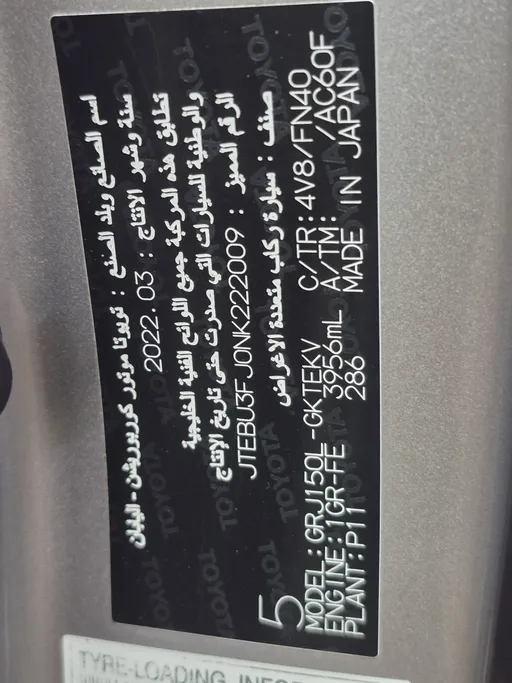 اسم الصانع وبلد الصنع : تويوتا موتور كوربوريشن - اليابان
سنة وشهر الانتاج : 2022.03
تطابق هذه المركبة جميع اللوائح الفنية الخليجية
والوطنية للسيارات التي صدرت حتى تاريخ الإنتاج
الرقم المميز : JTEBU3FJ0NK222009
صنف : سيارة ركاب متعددة الاغراض
5
MODEL:GRJ150L-GKTEKV C/TR:4V8/FN40
ENGINE:1GR-FE 3956mL A/TM: /AC60F
PLANT:P11 286 MADE IN JAPAN
TYRE-LOADING